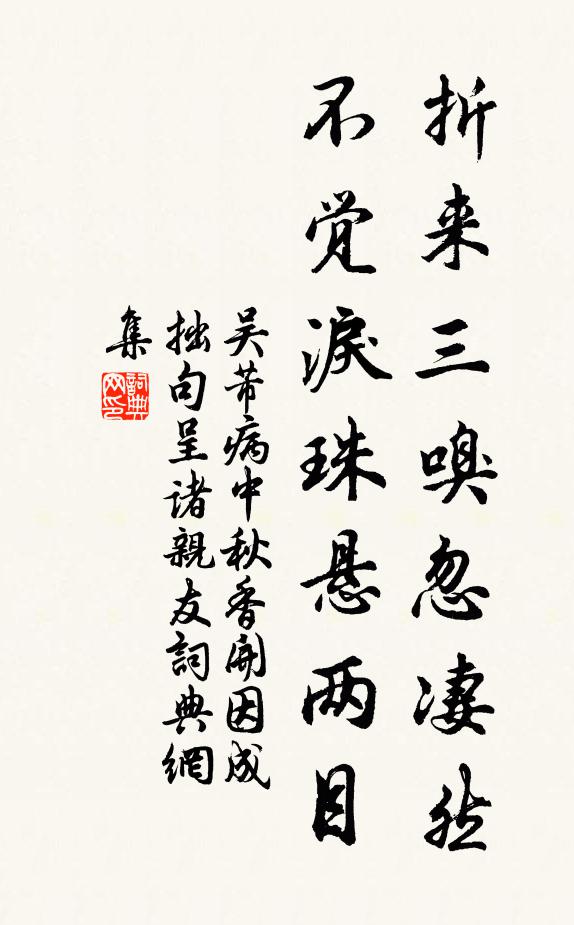 折来三嗅忽凄然
不觉淚珠悬两目
吴芾病中秋香開因成
拙句呈诸親友詞典網
集
詞典
网印